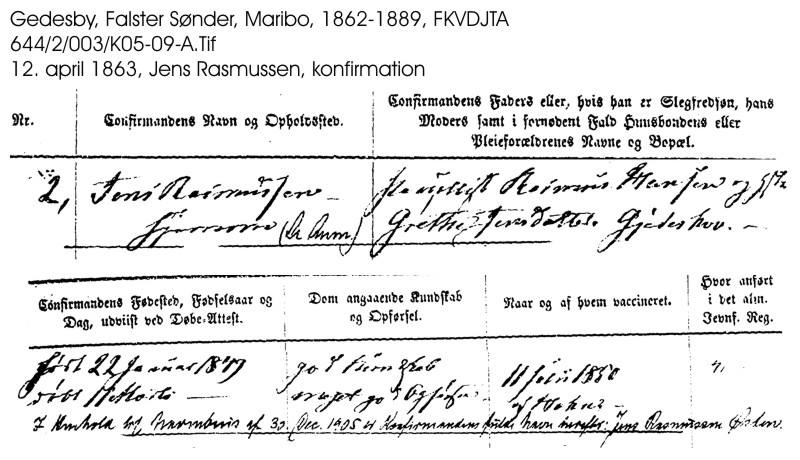 Gedesby, Falster Sønder, Maribo, 1862-1889, FKVDJTA
644/2/003/K05-09-A.Tif
12. april 1863, Jens Rasmussen, konfirmation
Nr.
Confirmandens Navn og Opholdssted.
Confirmandens Faders eller, hvis han er Slegfredsøn, hans
Moders samt i fornødent Fald Huusbondens eller
Pleieforældrenes Navne og Bopæl.
2,
Jens Rasmussen
Rasmus Hansen og
Grethe Jensdatter. Gjedeskov.
Confirmandens Fødested, Fødselsaar og
Dag, udviist ved Døbe-Attest.
Dom angaaende Kundskab
og Opførsel.
Naar og af hvem vaccineret.
Hvor anført
i det alm.
Jevnf. Reg.
født 22 Januar 1849
døbt 11 Marts
god Kundskab
meget god Opførsel
11 1850
af
I Henhold til af 30. Dec. 1905 er Konfirmandens fulde Navn herefter: Jens Rasmussen Østen.